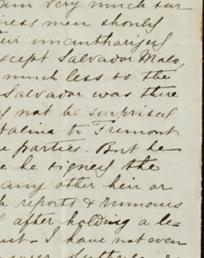 very much sur
ness men should
unauthorized
except Salvador Malo,
much less to the
Salvador was there
not be surprised
talina to Fremont
parties. But he
he signed the
any other heir or
reports & rumours
after holding a le-
I have not even